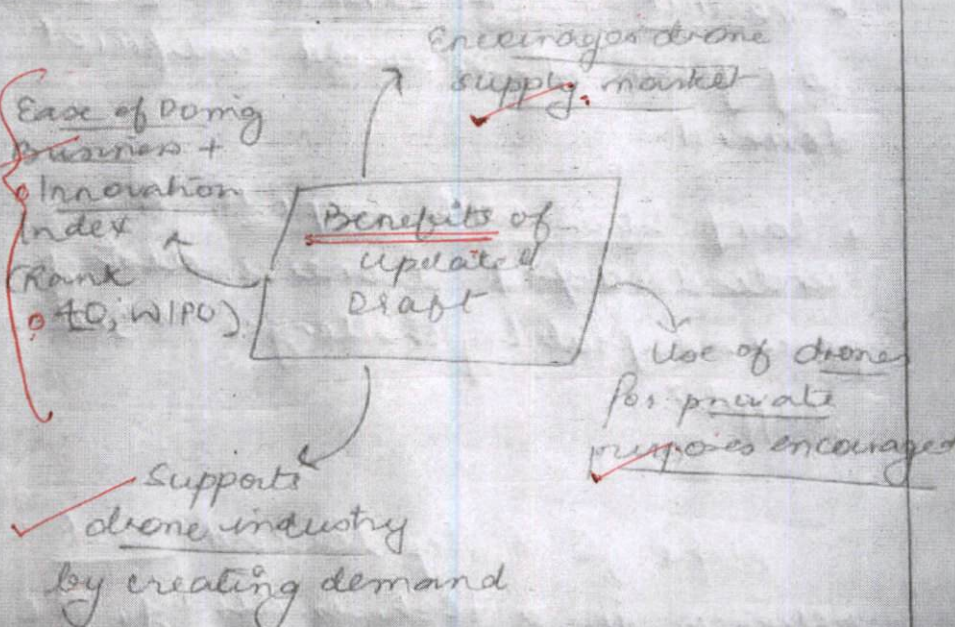 Encourages drone
supply market
Ease of Doing
Business +
Innovation
Index
(Rank
40, WIPO)
Benefits of
updated
Draft
Use of drones
for private
purposes encouraged
Supports
drone industry
by creating demand